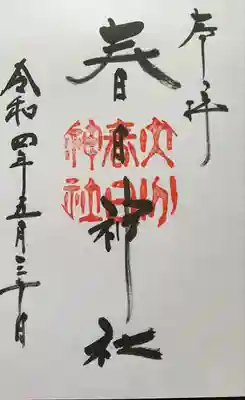 奉拝
春日神社
大分
春日
神社
令和四年五月三十日